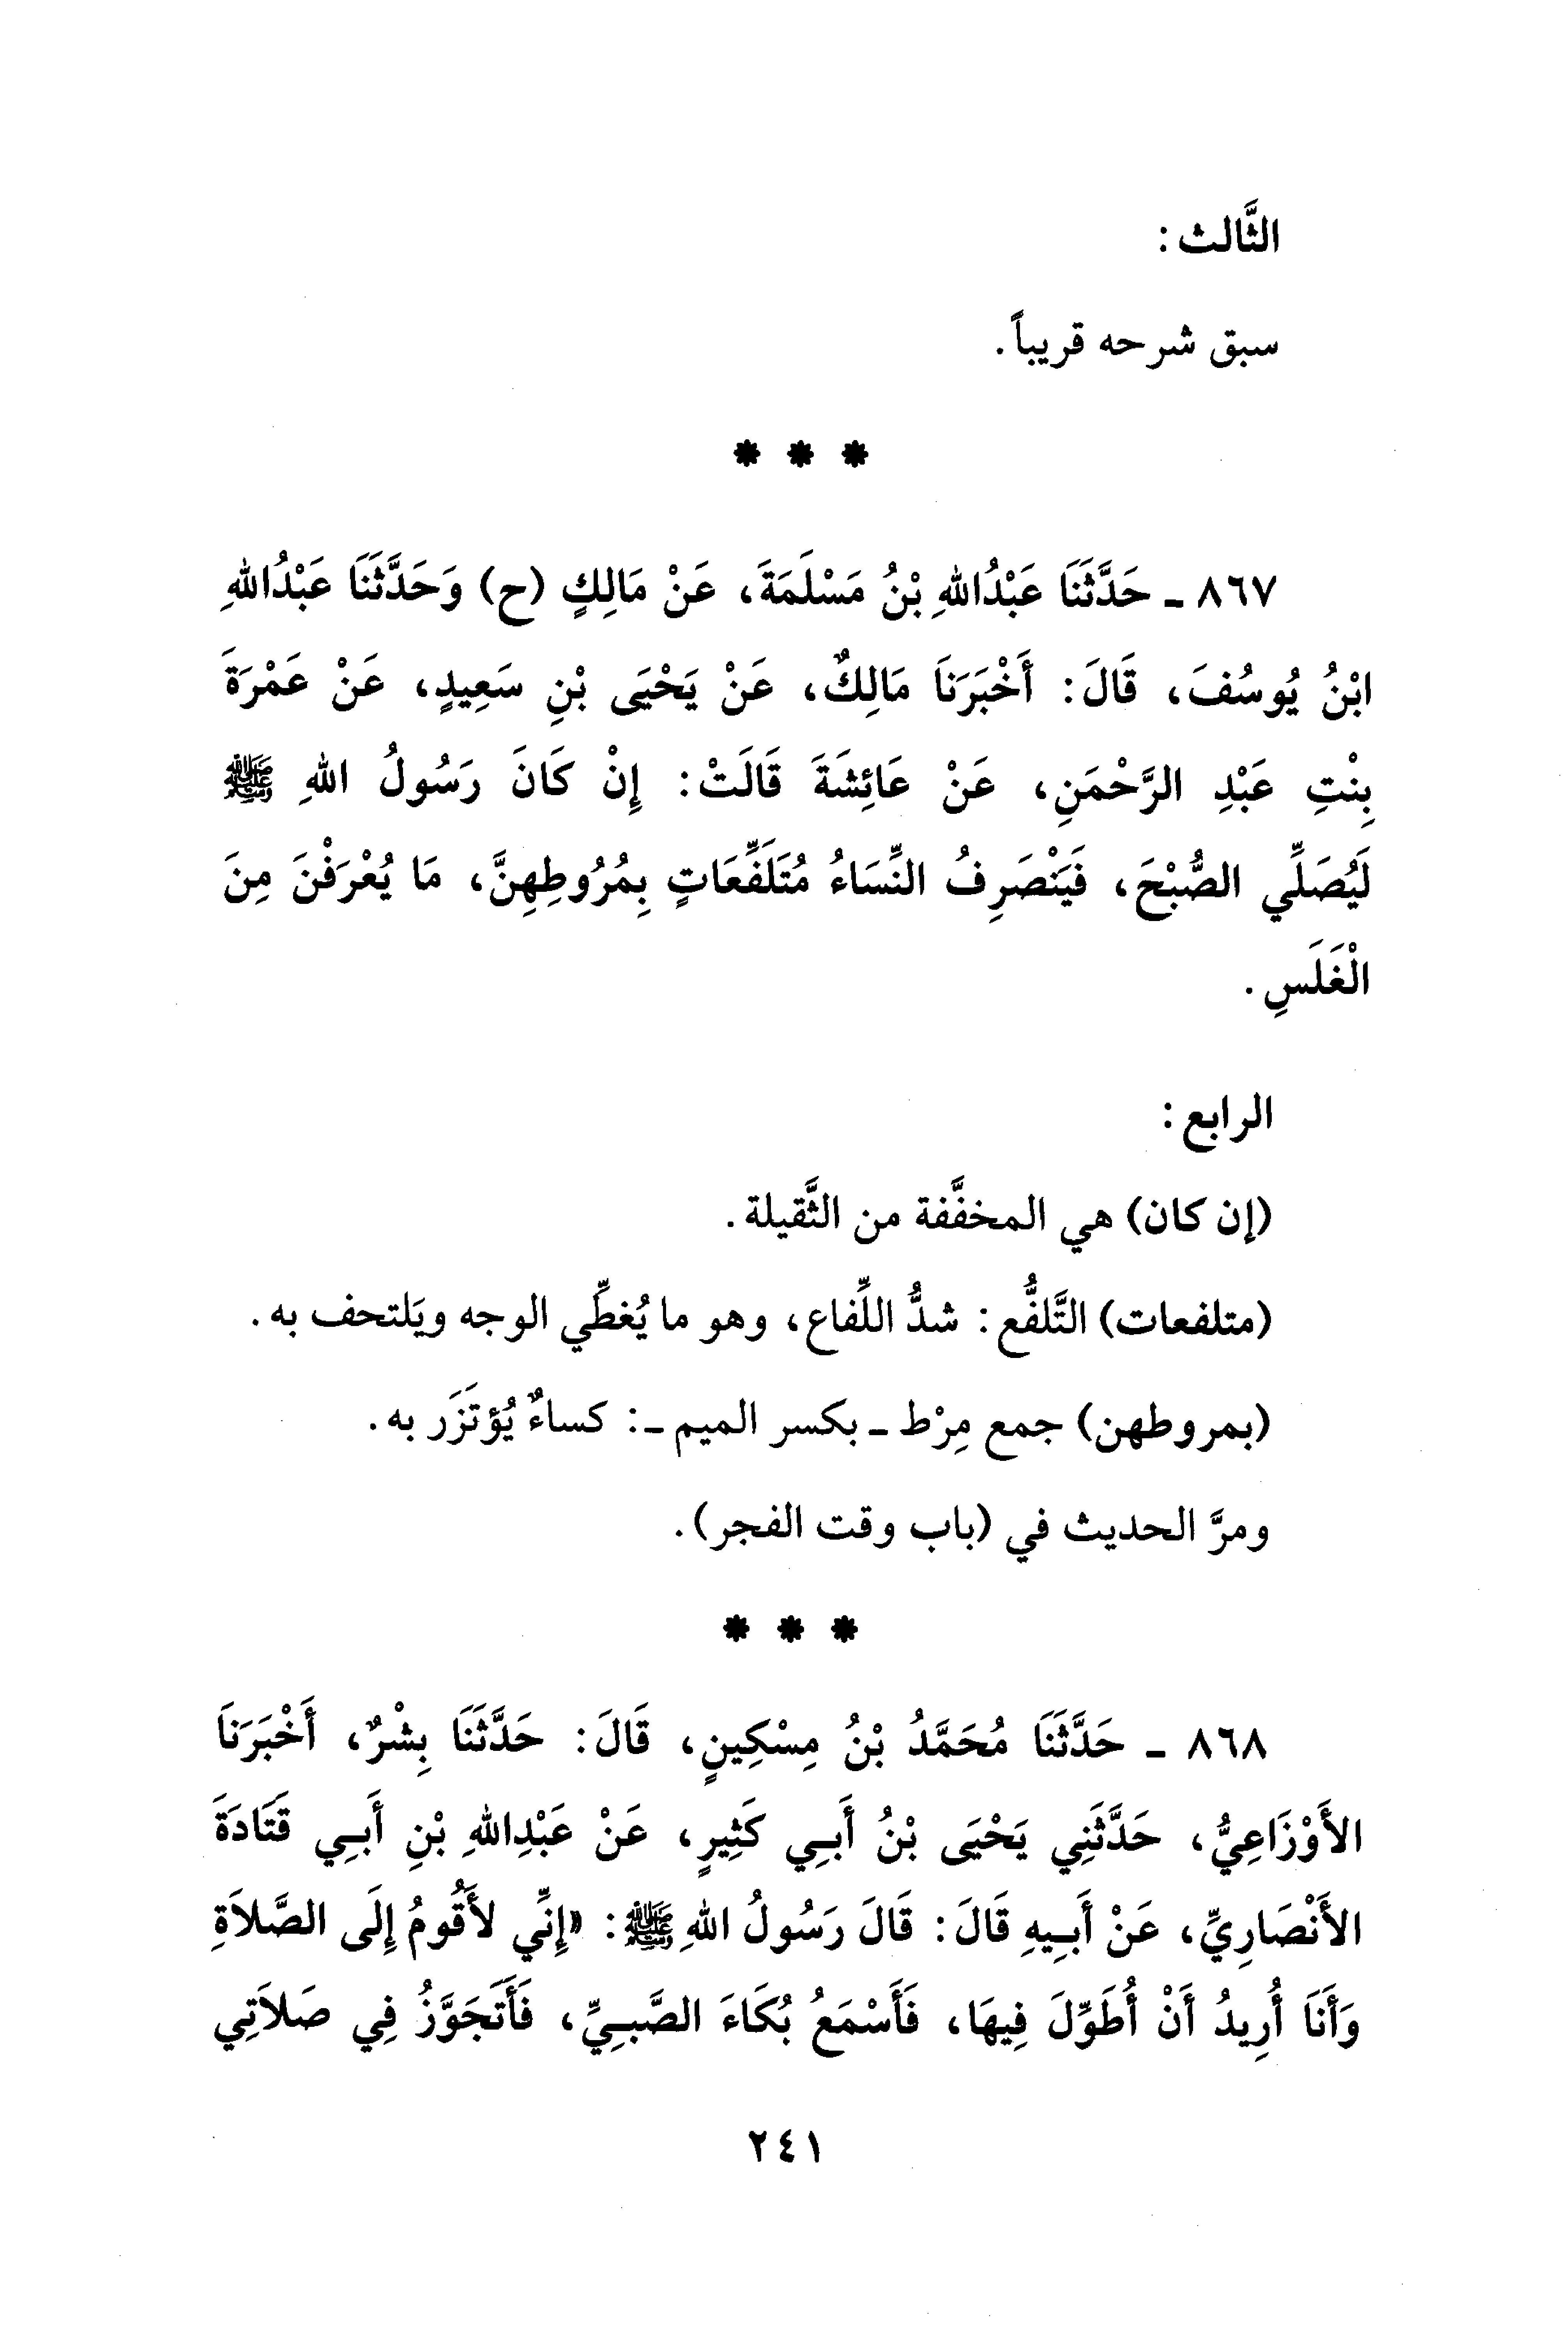 الثَّالث:
سبق شرحه قريباً.
* * *
٨٦٧ ـ حَدَّثَنَا عَبْدُاللهِ بْنُ مَسْلَمَةَ، عَنْ مَالِكٍ (ح) وَحَدَّثَنَا عَبْدُاللهِ
ابْنُ يُوسُفَ، قَالَ: أَخْبَرَنَا مَالِكٌ، عَنْ يَحْيَى بْنِ سَعِيدٍ، عَنْ عَمْرَةَ
بِنْتِ عَبْدِ الرَّحْمَنِ، عَنْ عَائِشَةَ قَالَتْ: إِنْ كَانَ رَسُولُ اللهِ ﷺ
لَيُصَلِّي الصُّبْحَ، فَيَنْصَرِفُ النِّسَاءُ مُتَلَفِّعَاتٍ بِمُرُوطِهِنَّ، مَا يُعْرَفْنَ مِنَ
الْغَلَسِ.
الرابع:
(إن كان) هي المخفَّفة من الثَّقيلة.
(متلفعات) التَّلفُّع: شدُّ اللِّفاع، وهو ما يُغطِّي الوجه ويَلتحف به.
(بمروطهن) جمع مِرْط ـ بكسر الميم ـ: كساءٌ يُؤتَزَر به.
ومرَّ الحديث في (باب وقت الفجر).
* * *
٨٦٨ ـ حَدَّثَنَا مُحَمَّدُ بْنُ مِسْكِينٍ، قَالَ: حَدَّثَنَا بِشْرٌ، أَخْبَرَنَا
الأَوْزَاعِيُّ، حَدَّثَنِي يَحْيَى بْنُ أَبِي كَثِيرٍ، عَنْ عَبْدِاللهِ بْنِ أَبِي قَتَادَةَ
الأَنْصَارِيِّ، عَنْ أَبِيهِ قَالَ: قَالَ رَسُولُ اللهِ ﷺ: «إِنِّي لأَقُومُ إِلَى الصَّلاَةِ
وَأَنَا أُرِيدُ أَنْ أُطَوِّلَ فِيهَا، فَأَسْمَعُ بُكَاءَ الصَّبِيِّ، فَأَتَجَوَّزُ فِي صَلاَتِي
٢٤١